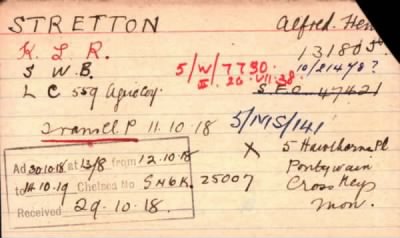 STRETTON Alfred. Hen
K. L. R. 131805
S W.B. 5/W/7730 10/21478?
L C 559 Agric Coy. II. 26. VII. 38. S.F.C. 47421
Transf. P 11.10.18 5/MS/141
X 5 Hawthorne Pl
Ad 30.10.18 at 13/8 from 12.10.18 Pontywain
to 14.10.19 Chelsea No SN6K. 25007 Cross Keys
Received 29.10.18. Mon.